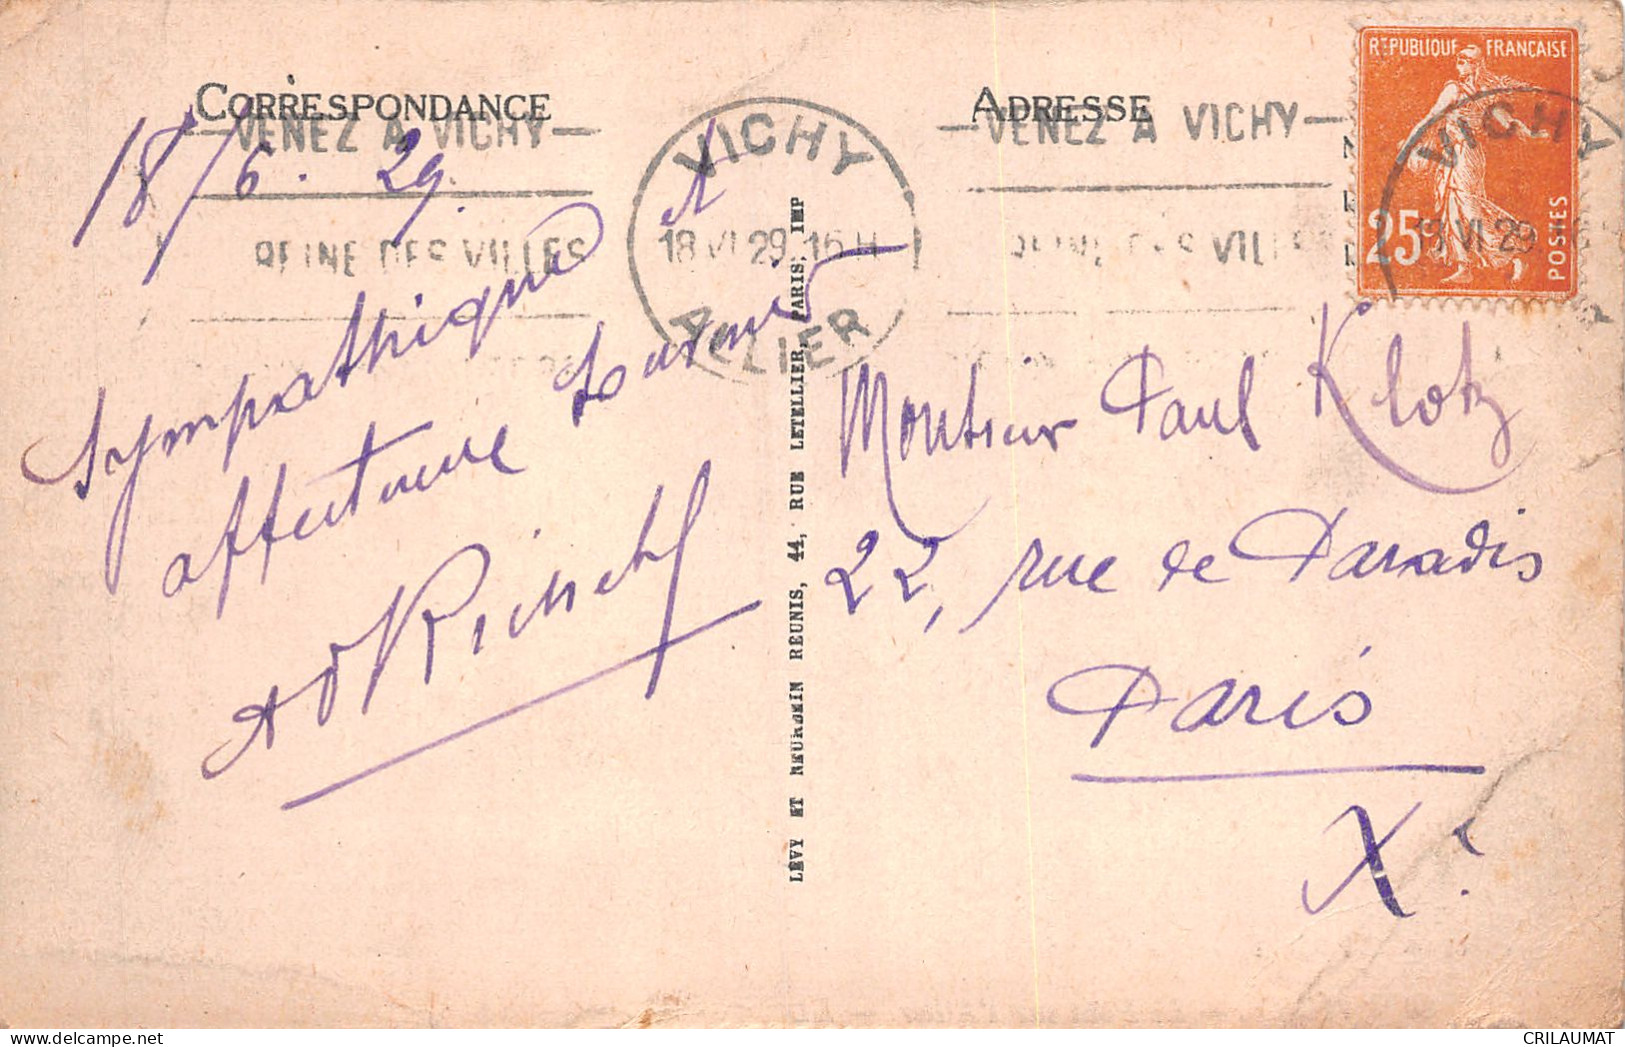 CORRESPONDANCE
ADRESSE
RÉPUBLIQUE FRANÇAISE
25
POSTES
VENEZ A VICHY
REINE DES VILLES
VICHY
18 VI 29 16 H
ALLIER
VENEZ A VICHY
REINE DES VILLE
VICHY
18 VI 29
18/6. 29.
Sympathique et
affectueux
LÉVY ET NEURDEIN RÉUNIS, 44, RUE LETELLIER, PARIS, IMP
Monsieur Paul Klotz
22, rue de Paradis
Paris
Xe
CRILAUMAT